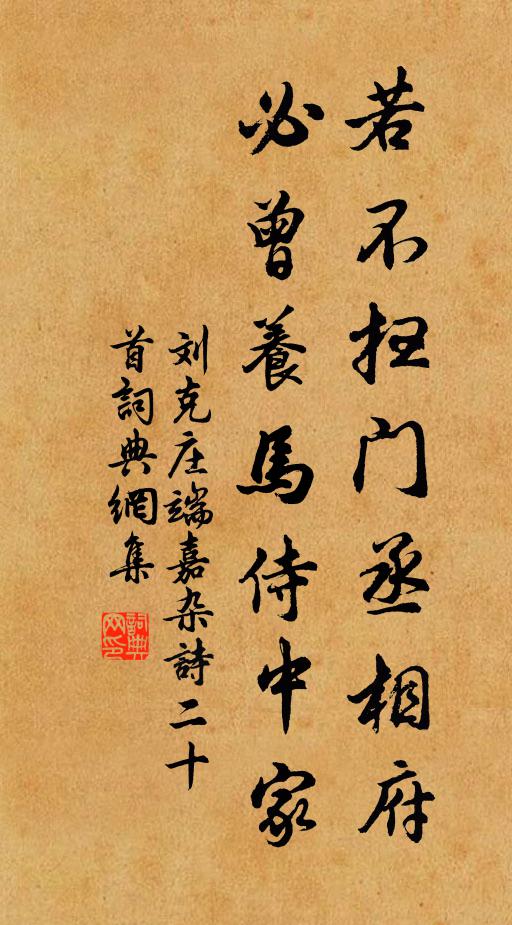 若不扫门丞相府
必曾養馬侍中家
刘克庄端嘉杂詩二十
首詞典網集
詞典網印